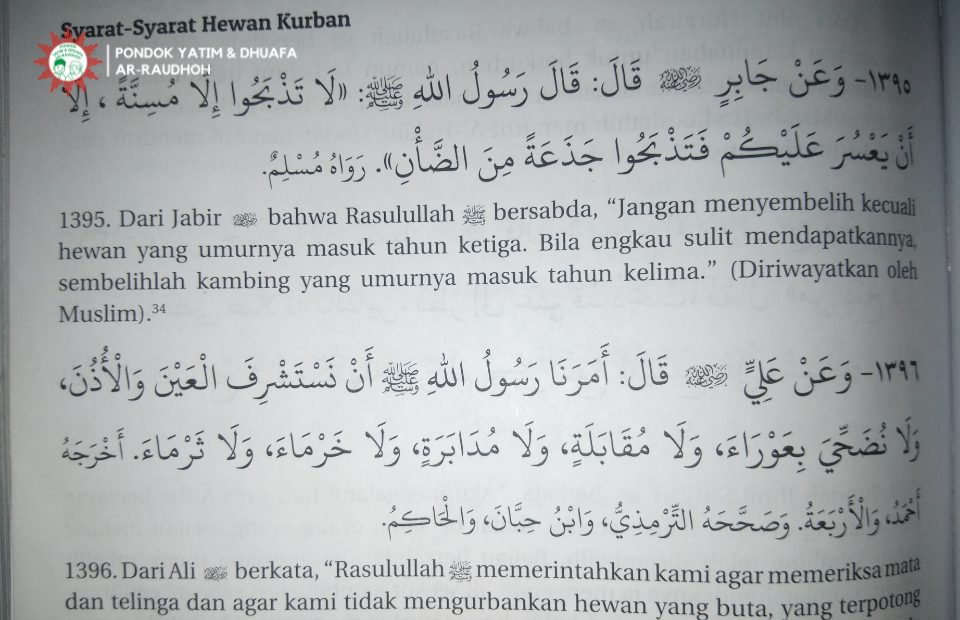 Syarat-Syarat Hewan Kurban
PONDOK YATIM & DHUAFA
AR-RAUDHOH
١٣٩٥- وَعَنْ جَابِرٍ ﷺ قَالَ: قَالَ رَسُولُ اللهِ ﷺ: «لَا تَذْبَحُوا إِلَّا مُسِنَّةً، إِلَّا
أَنْ يَعْسُرَ عَلَيْكُمْ فَتَذْبَحُوا جَذَعَةً مِنَ الضَّأْنِ». رَوَاهُ مُسْلِمٌ.
1395. Dari Jabir bahwa Rasulullah ﷺ bersabda, “Jangan menyembelih kecuali
hewan yang umurnya masuk tahun ketiga. Bila engkau sulit mendapatkannya,
sembelihlah kambing yang umurnya masuk tahun kelima.” (Diriwayatkan oleh
Muslim).³⁴
١٣٩٦- وَعَنْ عَلِيٍّ قَالَ: أَمَرَنَا رَسُولُ اللهِ ﷺ أَنْ نَسْتَشْرِفَ الْعَيْنَ وَالْأُذُنَ،
وَلَا نُضَحِّيَ بِعَوْرَاءَ، وَلَا مُقَابَلَةٍ، وَلَا مُدَابَرَةٍ، وَلَا خَرْمَاءَ، وَلَا ثَرْمَاءَ. أَخْرَجَهُ
أَحْمَدُ، وَالْأَرْبَعَةُ. وَصَحَّحَهُ التِّرْمِذِيُّ، وَابْنُ حِبَّانَ، وَالْحَاكِمُ.
1396. Dari Ali berkata, “Rasulullah ﷺ memerintahkan kami agar memeriksa mata
dan telinga dan agar kami tidak mengurbankan hewan yang buta, yang terpotong